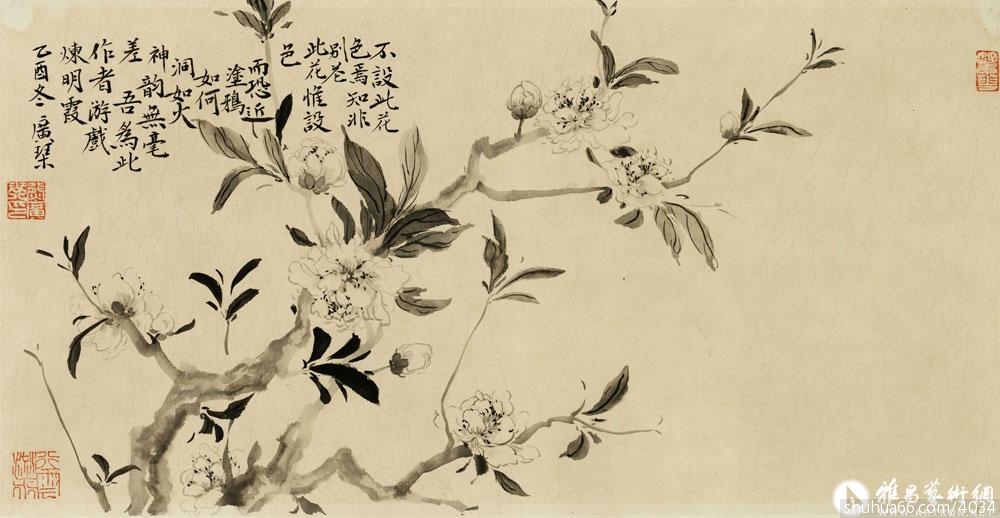 不設此花
色焉知非
別花
此花惟設
色
而恐近
塗鴉
如何
洞如火
神韻無毫
差 吾為此
作者游戲
煉明霞
乙酉冬 廣琹
雅昌藝術網
shuhua66.com/4034